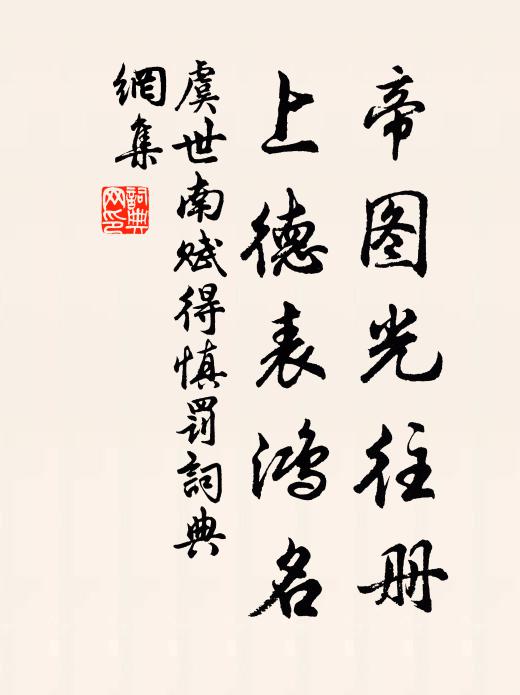 帝图光往册
上德表鸿名
虞世南赋得慎罚詞典
網集
詞典
网印